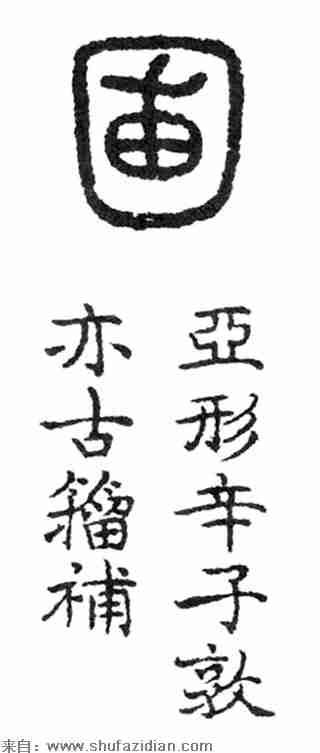 亞形辛子敦
亦古籀補
来自：www.shufazidian.com